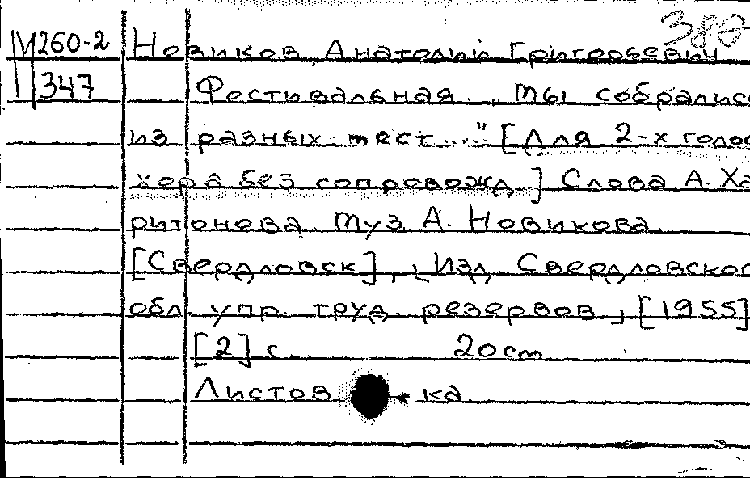 380
М260-2 Новиков, Анатолий Григорьевич
347 Фестивальная. „Мы собрались
из разных мест..." [Для 2-х голос
хора без сопровожд.] Слова А. Ха
ритонова. Муз. А. Новикова.
[Свердловск], Изд. Свердловского
обл. упр. труд. резервов, [1955]
[2] с. 20см
Листовка